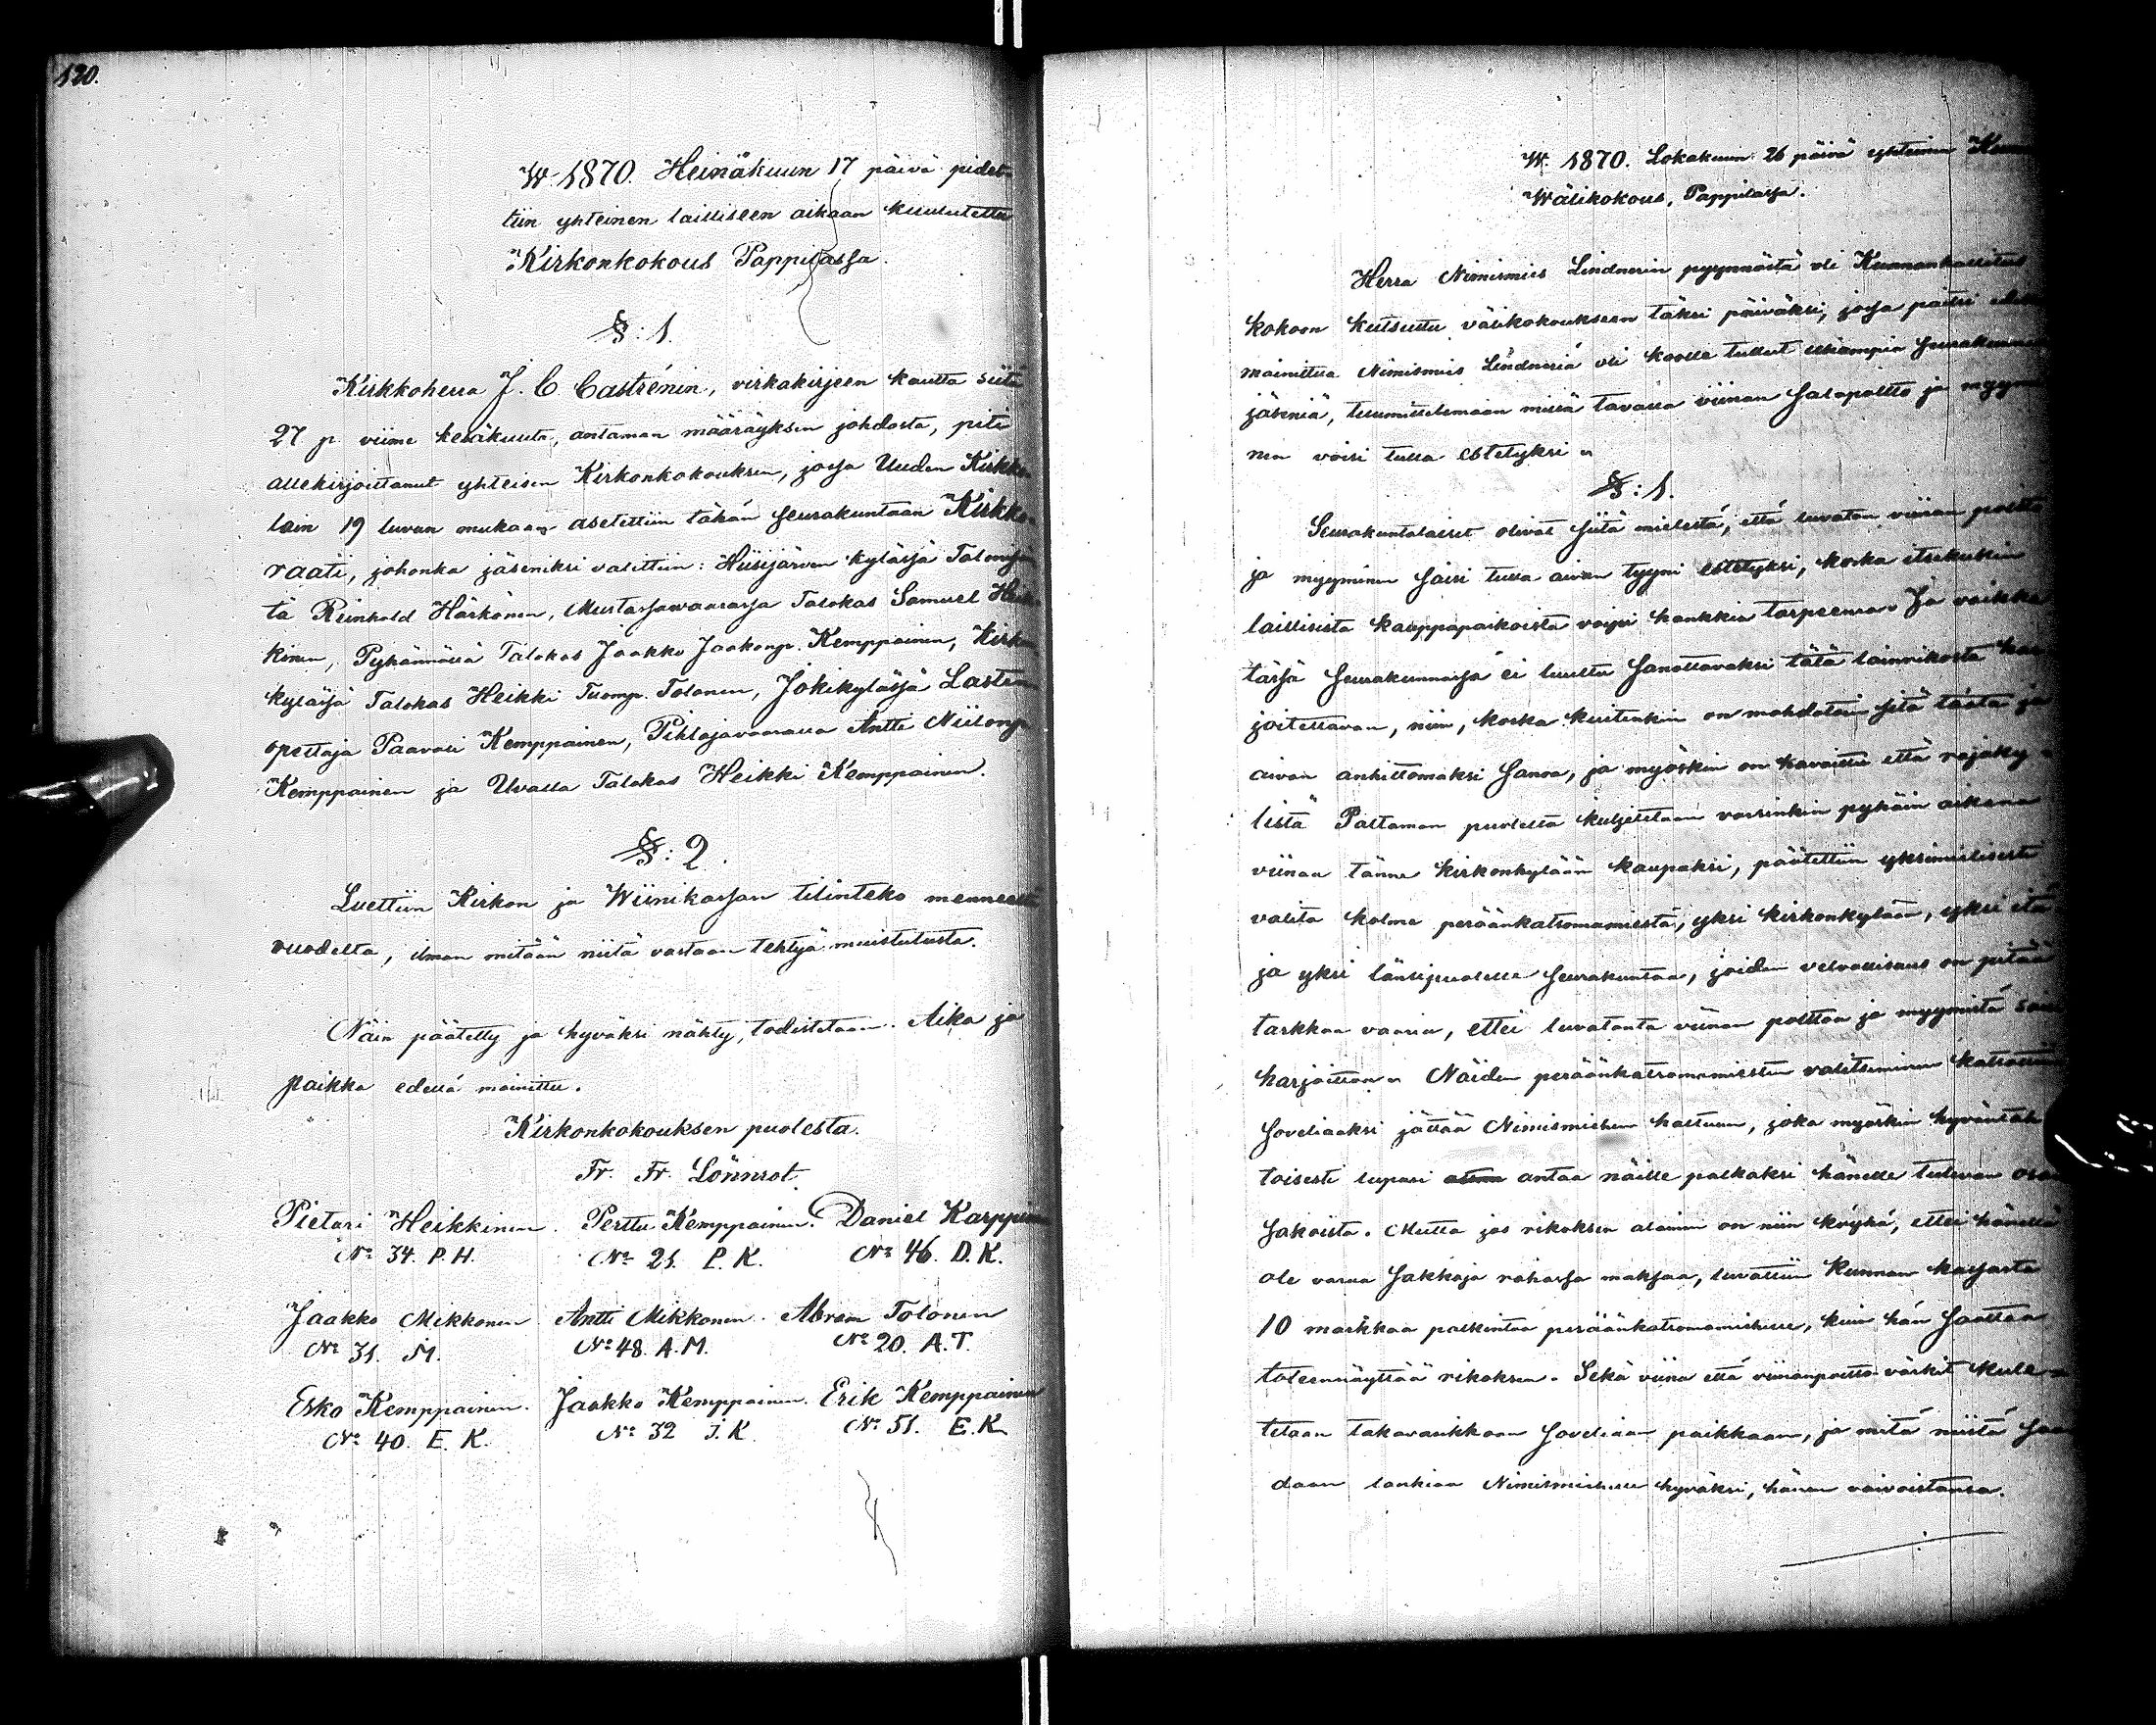 120.
W. 1870. Heinäkuun 17 päivä pidet-
tiin yhteinen lailliseen aikaan kuulutettu
Kirkonkokous Pappilassa.
§: 1.
Kirkkoherra J. C. Castrénin, virkakirjeen kautta siitä
27 p. viime kesäkuuta, antaman määräyksen johdosta, piti
allekirjoittanut yhteisen Kirkonkokouksen, jossa Uuden Kirkko-
lain 19 luvun mukaan asetettiin tähän seurakuntaan Kirkko-
raati, johonka jäseniksi valittiin: Hiisijärven kylässä
tä Reinhold Härkönen, Mustassawaarassa Talokas Samuel Heik-
kinen, Pyhännässä Talokas Jaakko Jaakonp. Kemppainen, Kirkon
kylässä Talokas Heikki Tuomp. Tolonen, Jokikylässä Lasten
opettaja Paavali Kemppainen, Pihlajavaarassa Antti Niilonp.
Kemppainen ja Uvalla Talokas Heikki Kemppainen.
§: 2.
Luettiin Kirkon ja Wiinikassan tilinteko menneeltä
vuodelta, ilman mitään niitä vastaan tehtyä muistutusta.
Näin päätetty ja hyväksi nähty, todistetaan. Aika ja
paikka edellä mainittu.
Kirkonkokouksen puolesta.
Fr. Fr. Lönnrot.
Pietari Heikkinen. Perttu Kemppainen. Daniel Karppinen
No 34. P. H. No 21. P. K. No 46. D. K.
Jaakko Mikkonen Antti Mikkonen. Abram Tolonen
No 31. M. No 48. A. M. No 20. A. T.
Esko Kemppainen. Jaakko Kemppainen. Erik Kemppainen
No 40. E. K. No 32 J. K. No 51. E. K.
W. 1870. Lokakuun 26 päivä yhteinen
Wälikokous, Pappilassa.
Herra Nimismies Lindnerin pyynnöstä oli Kunnanhallitus
kokoon kutsuttu välikokoukseen täksi päiväksi, jossa paitsi
mainittua Nimismies Lindneriä oli koolle tullut useampia seurakunnan
jäseniä, tuumittelemaan millä tavalla viinan salapoltto ja myymi-
nen voisi tulla estetyksi.
§: 1.
Seurakuntalaiset olivat siitä mielestä, että luvaton viinan poltto
ja myyminen saisi tulla aivan tyyni estetyksi, koska itsekukin
laillisista kauppapaikoista voipi hankkia tarpeensa. Ja vaikka
tässä seurakunnassa ei luultu sanottavaksi tätä lainrikosta har-
joitettavan, niin, koska kuitenkin on mahdoton sitä tästä ja
aivan anhittomaksi sanoa, ja myöskin on havaittu että rajaky-
listä Paltamon puolelta kuljetetaan varsinkin pyhäin aikana
viinaa tänne kirkonkylään kaupaksi, päätettiin yksimielisesti
valita kolme peräänkatsomamiestä, yksi kirkonkylään, yksi itä
ja yksi länsipuolelle seurakuntaa, joiden velvollisuus on pitää
tarkkaa vaaria, ettei luvatonta viinan polttoa ja myymistä saada
harjoittaa. Näiden peräänkatsomamiesten valitseminen katsottiin
soveliaaksi jättää Nimismiehen haltuun, joka myöskin hyväntah-
toisesti lupasi antaa näille palkaksi hänelle tulevan osan
sakoista. Mutta jos rikoksen alainen on niin köyhä, ettei hänellä
ole varaa sakkoja rahassa maksaa, luvattiin Kunnan kassasta
10 markkaa palkintoa peräänkatsomamiehelle, kuin hän saattaa
toteennäyttää rikoksen. Sekä viina että viinanpoltto värkit kule-
tetaan takavarikkoon soveliaan paikkaan, ja mitä niistä saa-
daan lankiaa Nimismiehelle hyväksi, hänen vaivoistansa.